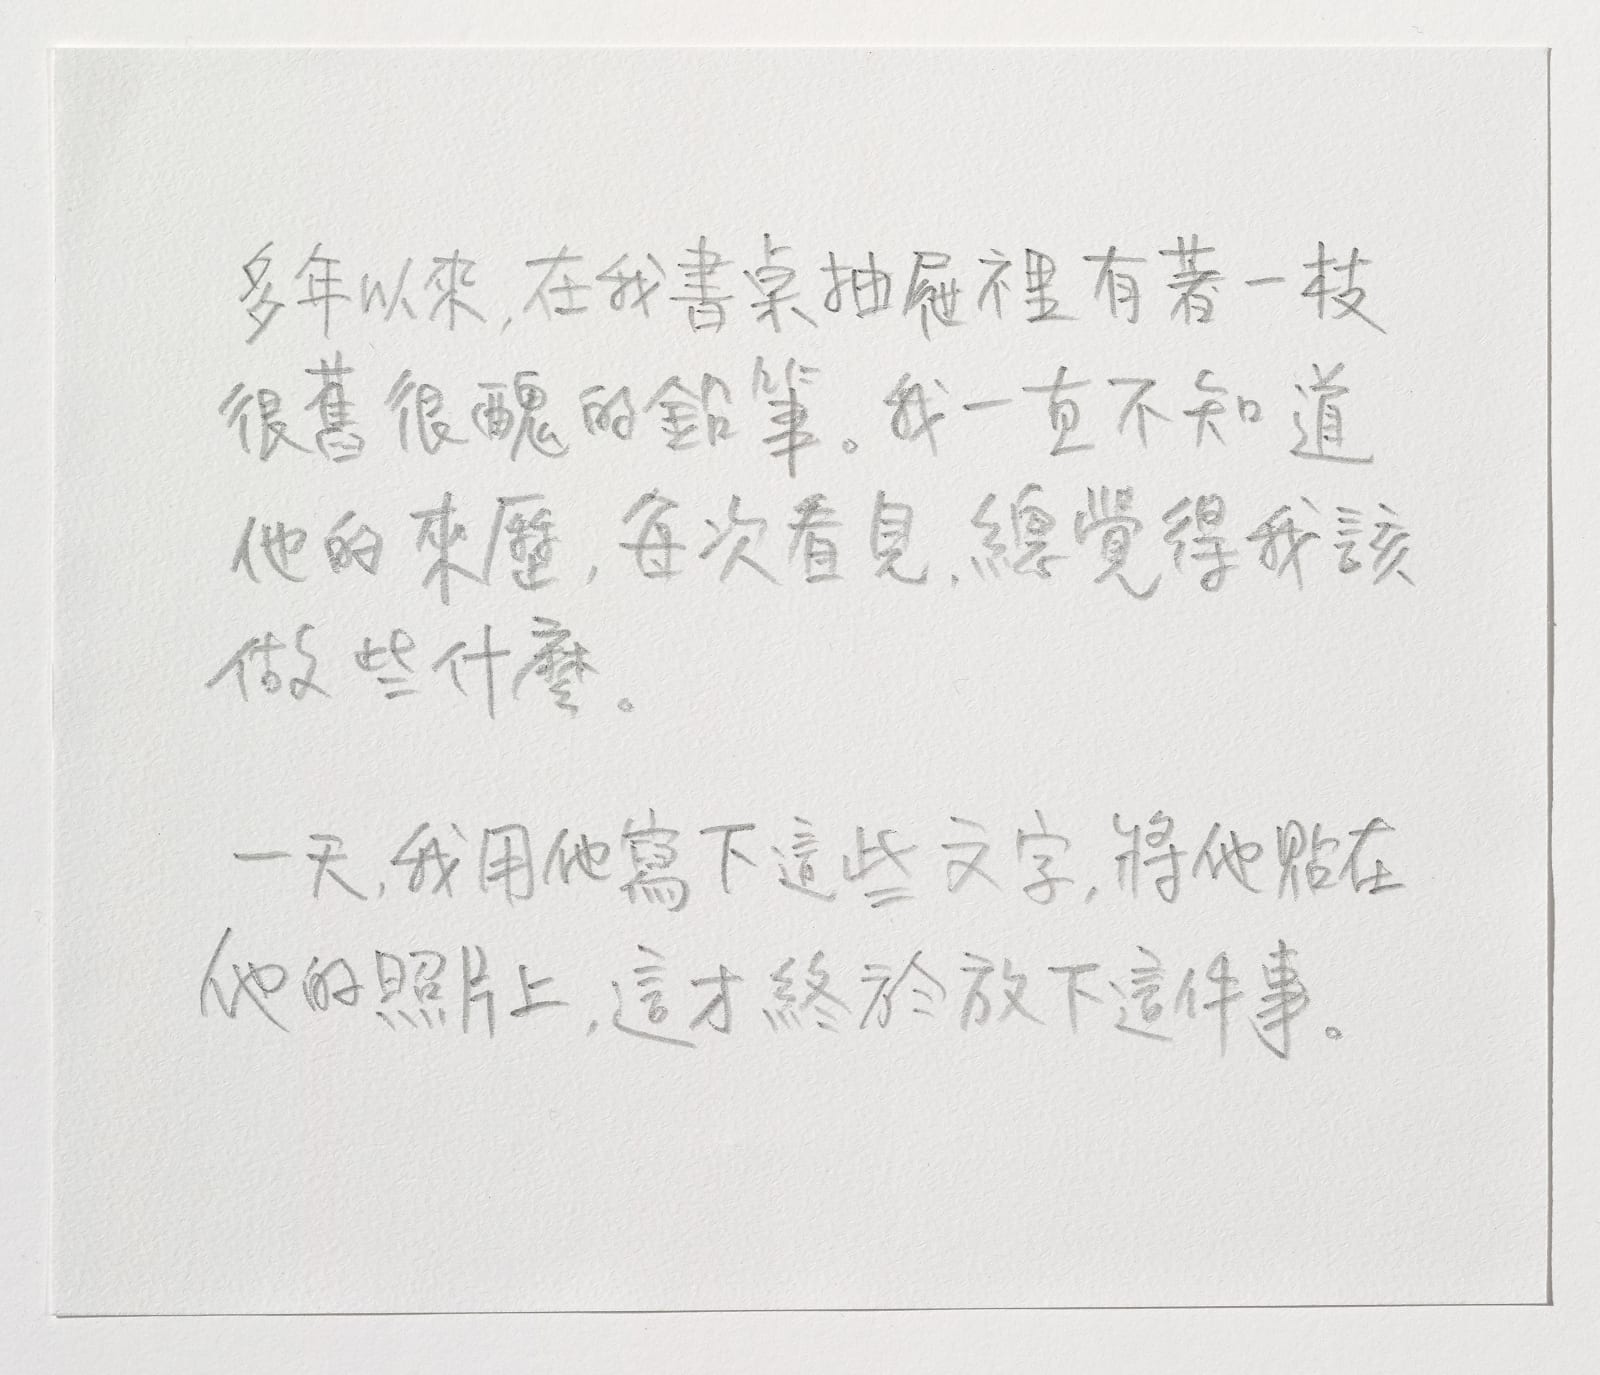 多年以來,在我書桌抽屜裡有著一枝
很舊很醜的鉛筆。我一直不知道
他的來歷,每次看見,總覺得我該
做些什麼。
一天,我用他寫下這些文字,將他貼在
他的照片上,這才終於放下這件事。